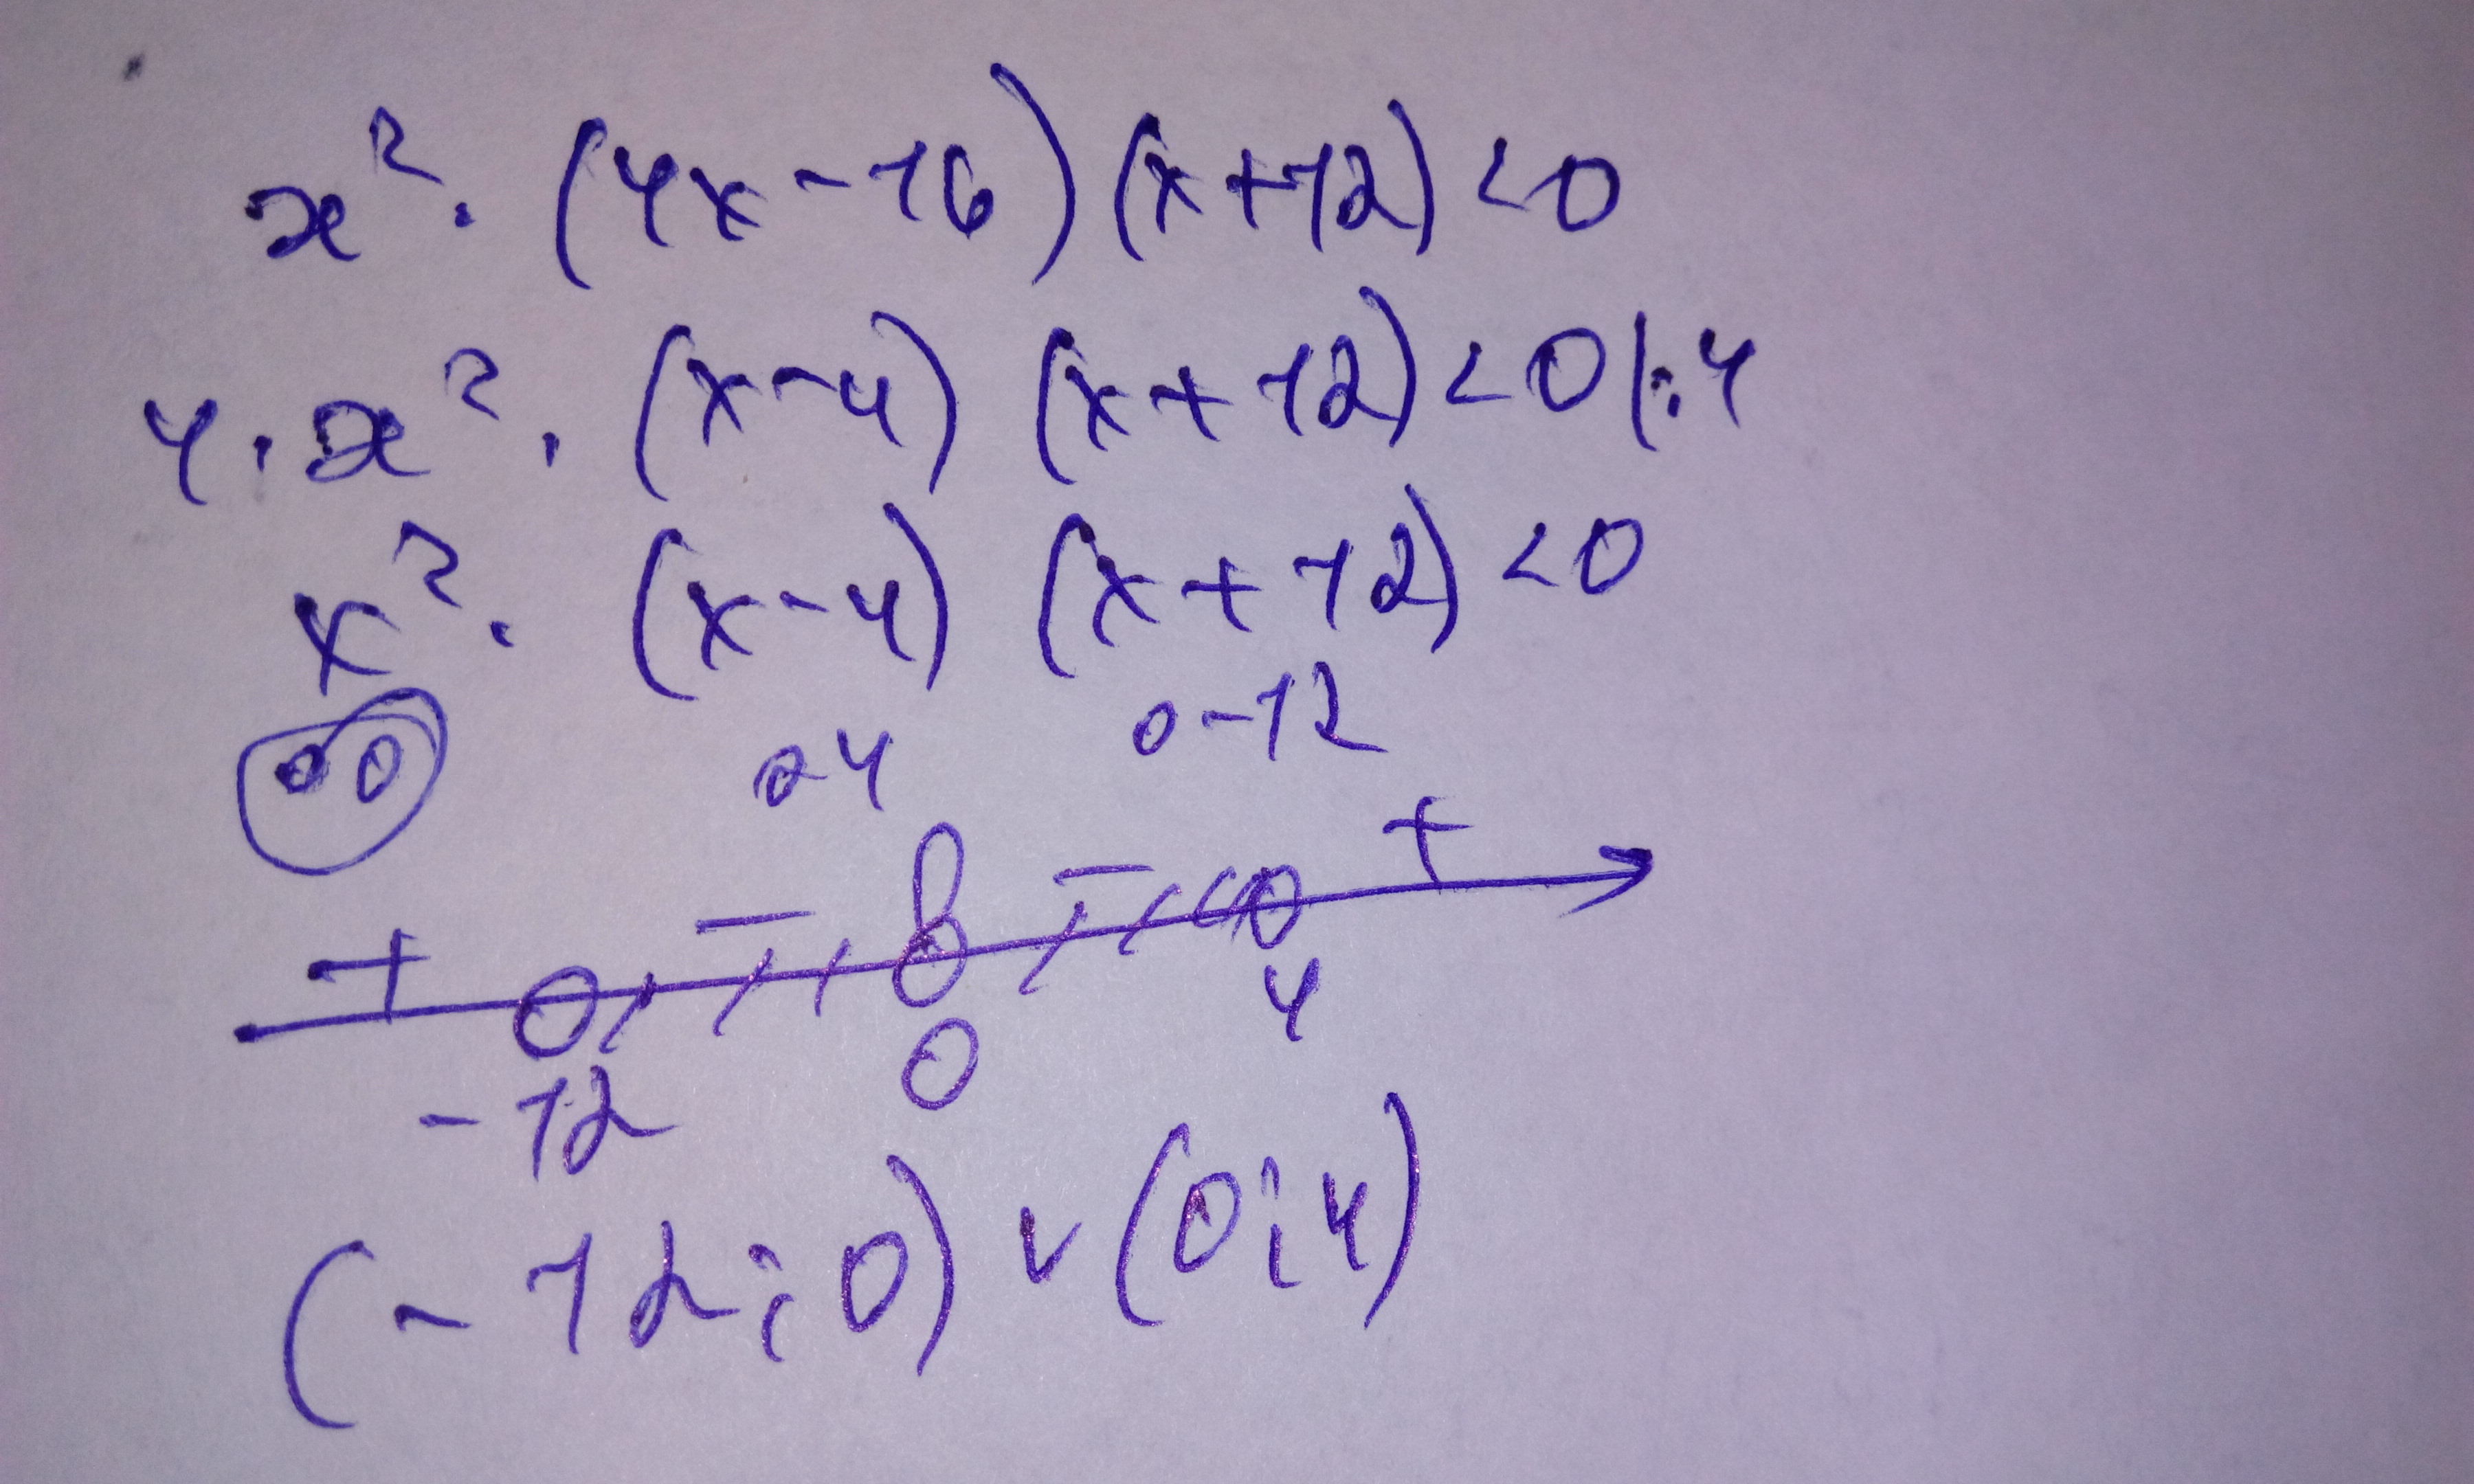 x². (4x-16)(x+12)<0
4·x²·(x-4)(x+12)<0|:4
x²·(x-4)(x+12)<0
0 0 0 4 0 -12
+ - - +
-12 0 4
(-12;0)∨(0;4)